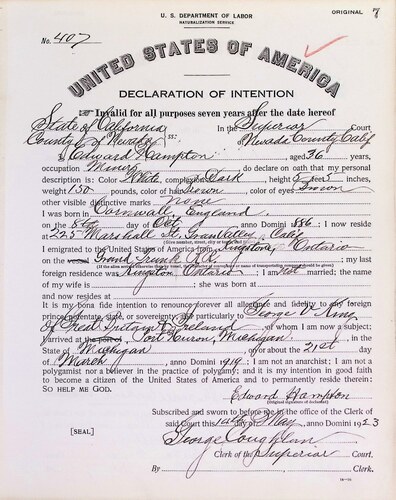 U. S. DEPARTMENT OF LABOR
NATURALIZATION SERVICE
ORIGINAL 7
No. 407
UNITED STATES OF AMERICA
DECLARATION OF INTENTION
Invalid for all purposes seven years after the date hereof
State of California
County of Nevada ss: In the Superior Court
of Nevada County Calif
I, Edward Hampton, aged 36 years,
occupation Miner, do declare on oath that my personal
description is: Color White, complexion Dark, height 5 feet 5 inches,
weight 150 pounds, color of hair Brown, color of eyes Brown
other visible distinctive marks none
I was born in Cornwall, England
on the 8th day of Oct, anno Domini 1886; I now reside
at 225 Marshall St. Grass Valley, Calif
(Give number, street, city or town, and State.)
I emigrated to the United States of America from Kingston, Ontario
on the Grand Trunk R.R.; my last
foreign residence was Kingston Ontario; I am not married; the name
of my wife is; she was born at
and now resides at
It is my bona fide intention to renounce forever all allegiance and fidelity to any foreign
prince, potentate, state, or sovereignty, and particularly to George V King
of Great Britain & Ireland, of whom I am now a subject;
I arrived at the port of Port Huron, Michigan, in the
State of Michigan, on or about the 21st day
of March, anno Domini 1919; I am not an anarchist; I am not a
polygamist nor a believer in the practice of polygamy; and it is my intention in good faith
to become a citizen of the United States of America and to permanently reside therein:
SO HELP ME GOD.
Edward Hampton
(Original signature of declarant.)
Subscribed and sworn to before me in the office of the Clerk of
said Court this day of May, anno Domini 1923
[SEAL]
George Coughlan
Clerk of the Superior Court.
By, Clerk.